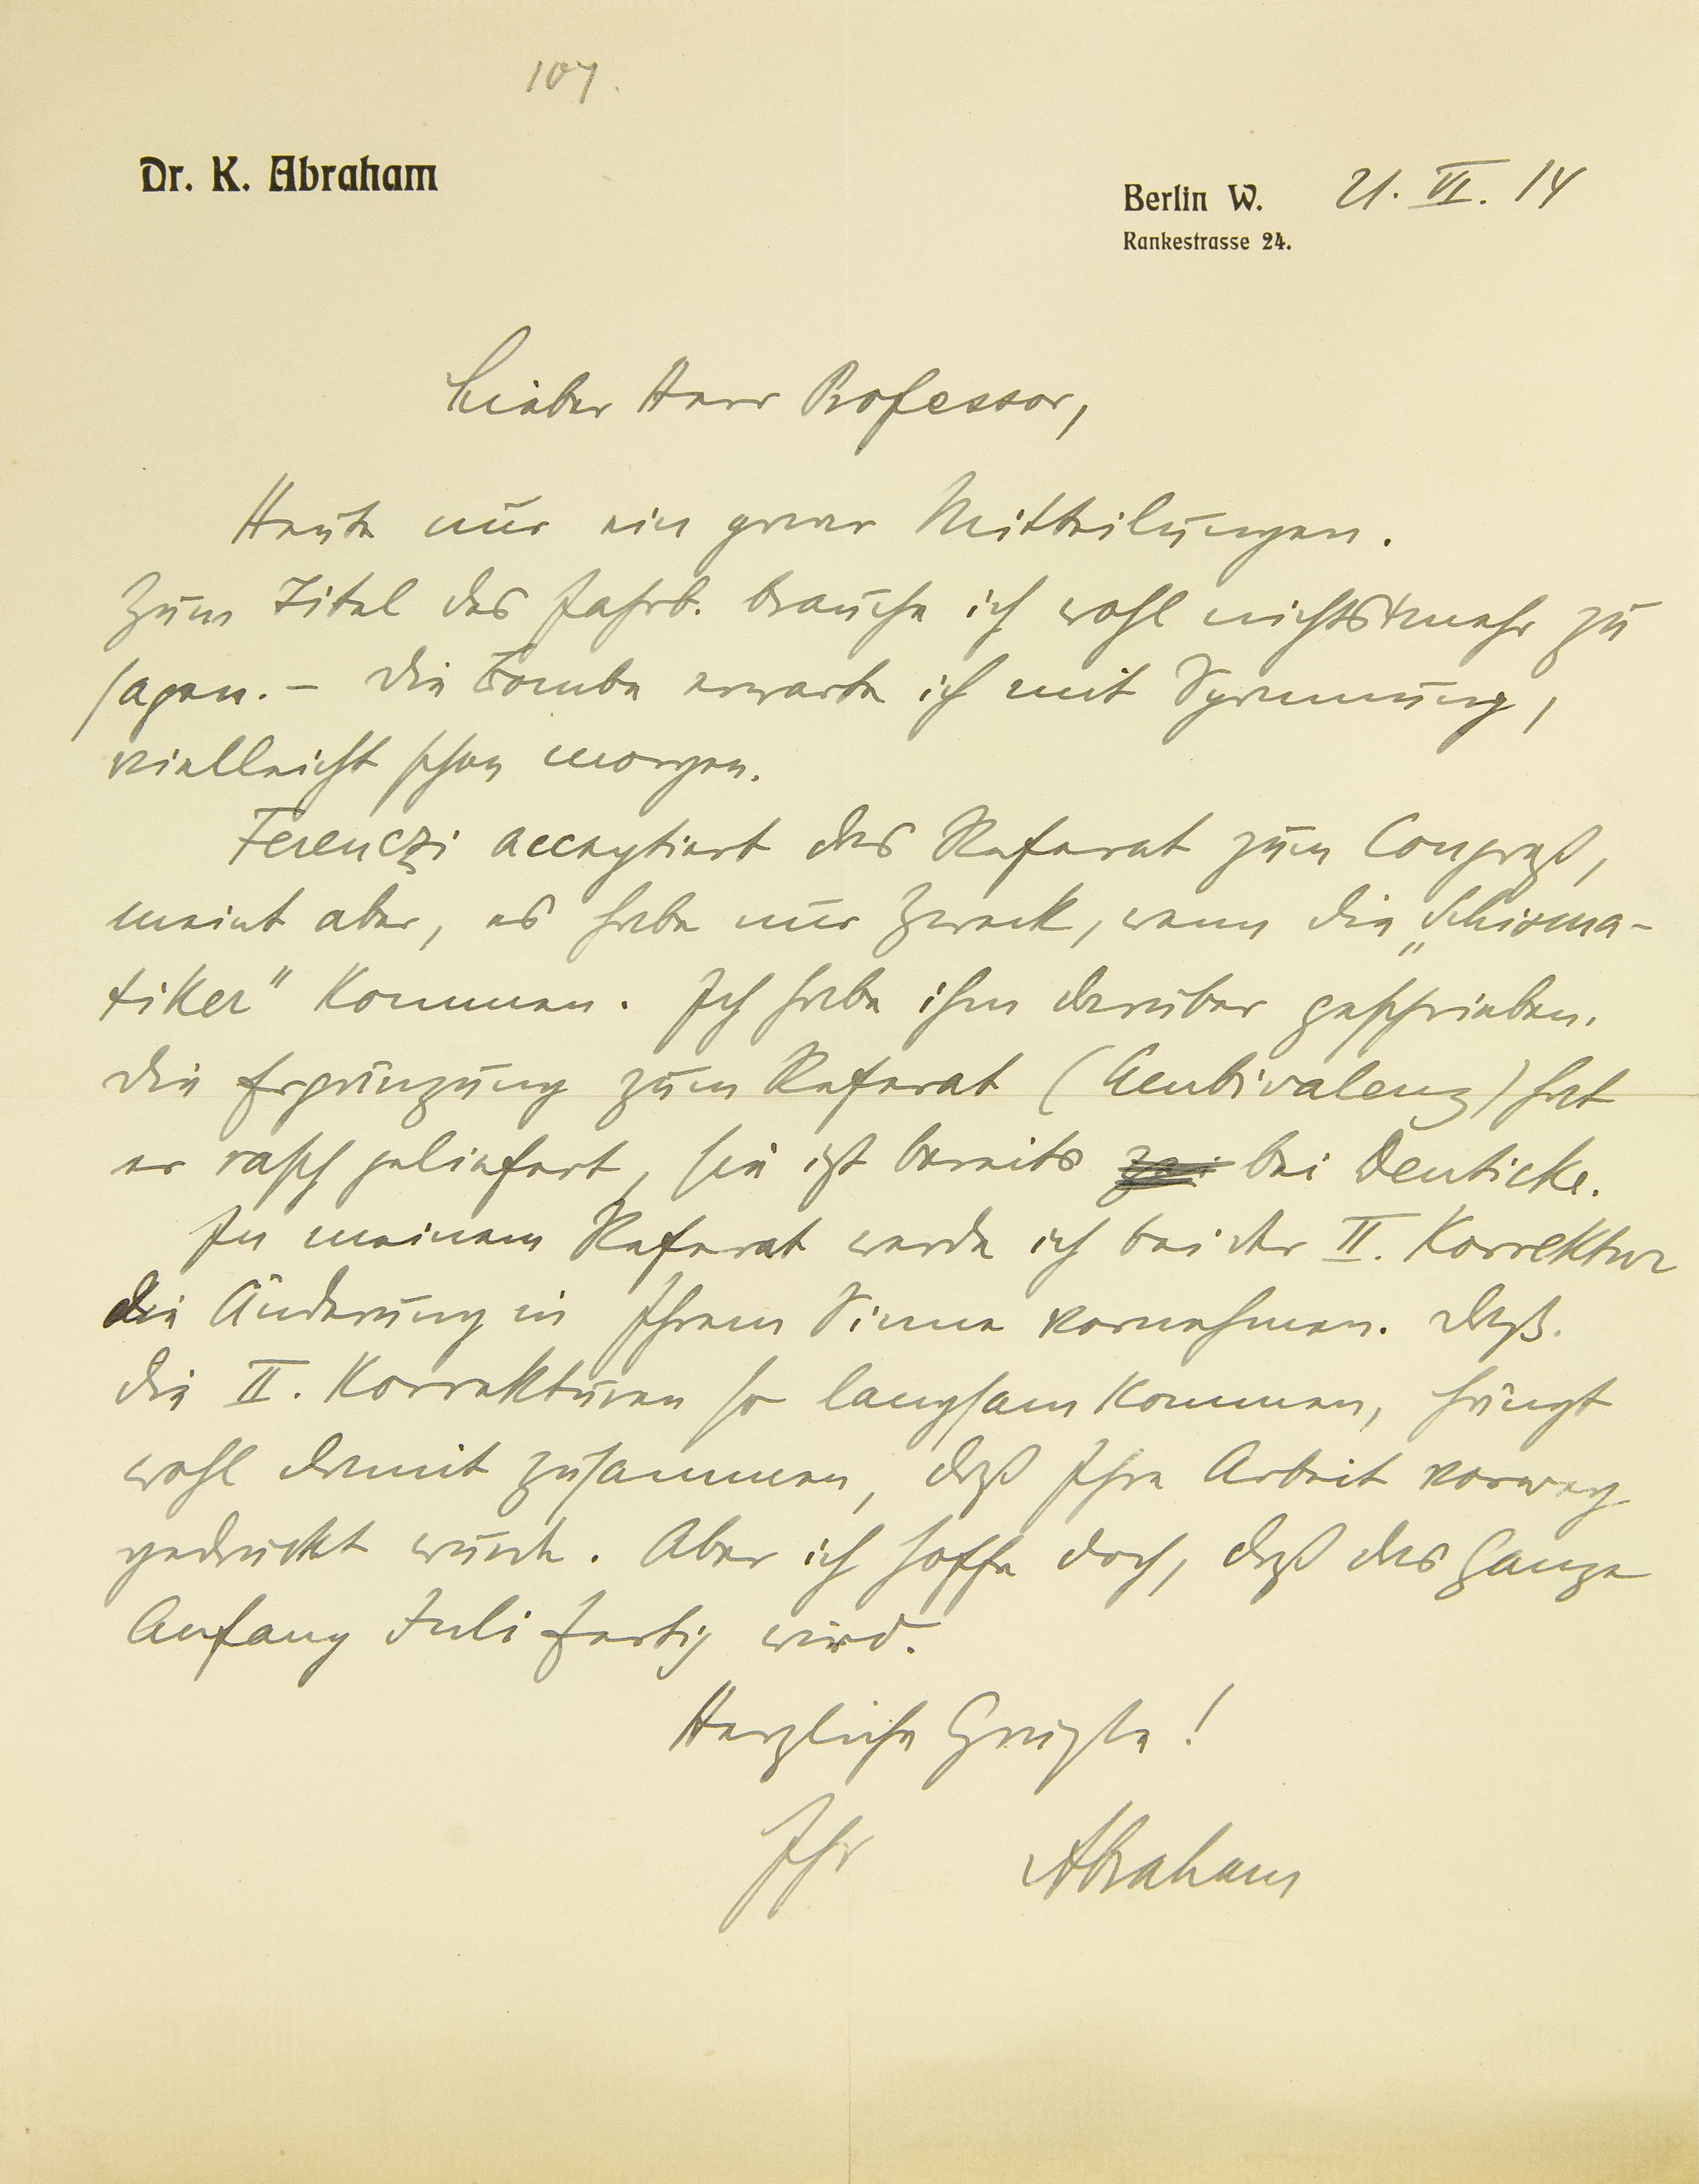 107.
Dr. K. Abraham
Berlin W. 21. VI. 14
Rankestrasse 24.
Lieber Herr Professor,
Heute nur ein paar Mitteilungen.
Zum Titel des Jahrb. brauche ich wohl nichts mehr zu
sagen. – Die Bombe erwarte ich mit Spannung,
vielleicht schon morgen.
Ferenczi acceptiert das Referat zum Congreß,
meint aber, es habe nur Zweck, wenn die „Schisma-
tiker" kommen. Ich habe ihm darüber geschrieben.
Die Ergänzung zum Referat (Ambivalenz) hat
er rasch geliefert, sie ist bereits bei Deuticke.
In meinem Referat werde ich bei der II. Korrektur
die Änderung in Ihrem Sinne vornehmen. Daß
die II. Korrekturen so langsam kommen, hängt
wohl damit zusammen, daß Ihre Arbeit vorweg
gedruckt wurde. Aber ich hoffe doch, daß das Ganze
Anfang Juli fertig wird.
Herzliche Grüße!
Ihr Abraham